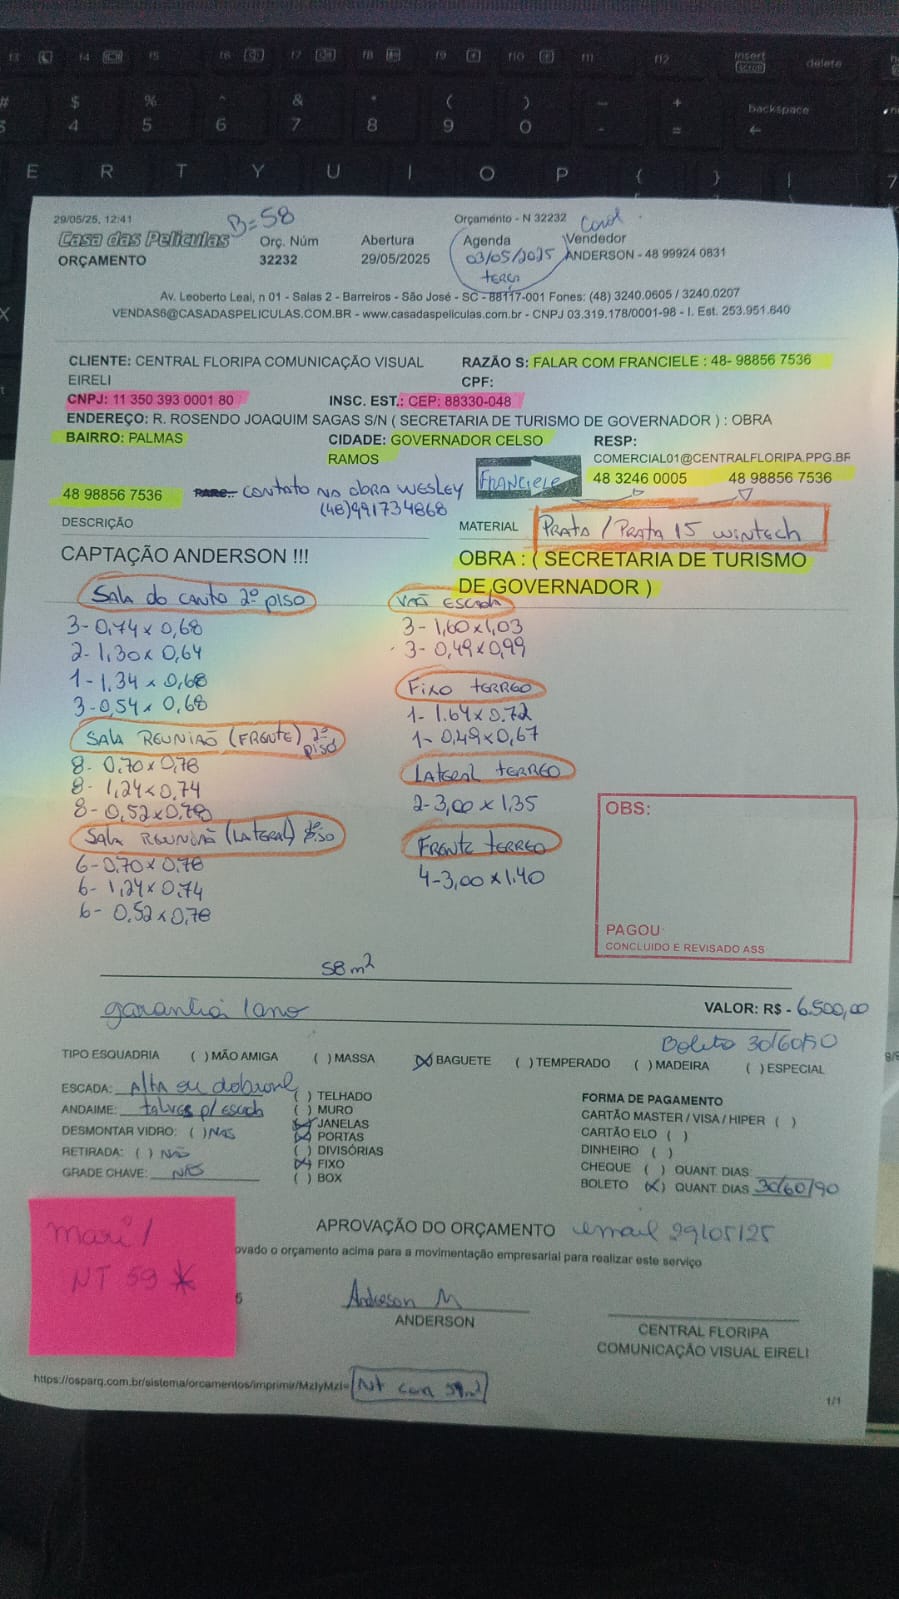 29/05/25, 12:41
B=58
Orçamento - N 32232
Carol
Casa das Películas
Orç. Núm
Abertura
Agenda
Vendedor
ORÇAMENTO
32232
29/05/2025
03/05/2025
ANDERSON - 48 99924 0831
terça
Av. Leoberto Leal, n 01 - Salas 2 - Barreiros - São José - SC - 88117-001 Fones: (48) 3240.0605 / 3240.0207
VENDAS6@CASADASPELICULAS.COM.BR - www.casadaspeliculas.com.br - CNPJ 03.319.178/0001-98 - I. Est. 253.951.640
CLIENTE: CENTRAL FLORIPA COMUNICAÇÃO VISUAL
EIRELI
RAZÃO S: FALAR COM FRANCIELE : 48- 98856 7536
CPF:
CNPJ: 11 350 393 0001 80
INSC. EST.: CEP: 88330-048
ENDEREÇO: R. ROSENDO JOAQUIM SAGAS S/N ( SECRETARIA DE TURISMO DE GOVERNADOR ) : OBRA
BAIRRO: PALMAS
CIDADE: GOVERNADOR CELSO
RAMOS
RESP:
COMERCIAL01@CENTRALFLORIPA.PPG.BR
48 3246 0005 48 98856 7536
FRANCIELE
48 98856 7536
Contato na obra Wesley
(48)991734868
DESCRIÇÃO
MATERIAL
Prata / Prata 15 wintech
CAPTAÇÃO ANDERSON !!!
OBRA : ( SECRETARIA DE TURISMO
DE GOVERNADOR )
Sala do canto 2º piso
3- 0,74 x 0,68
2- 1,30 x 0,64
1- 1,34 x 0,68
3- 0,54 x 0,68
Sala Reunião (Frente) 2º
piso
8- 0,70 x 0,78
8- 1,24 x 0,74
8- 0,52 x 0,78
Sala Reunião (Lateral) piso
6- 0,70 x 0,78
6- 1,24 x 0,74
6- 0,52 x 0,78
Vão Escada
3- 1,60 x 1,03
3- 0,49 x 0,99
Fixo terreo
1- 1.64 x 0.72
1- 0,49 x 0,67
Lateral terreo
2- 3,00 x 1,35
Frente terreo
4- 3,00 x 1.40
OBS:
PAGOU
CONCLUIDO E REVISADO ASS
58 m²
garantia 1 ano
VALOR: R$ - 6.500,00
Boleto 30/60/90
TIPO ESQUADRIA ( ) MÃO AMIGA ( ) MASSA (X) BAGUETE ( ) TEMPERADO ( ) MADEIRA ( ) ESPECIAL
ESCADA: Alta ou dobravel
ANDAIME: talves p/ escada
DESMONTAR VIDRO: ( ) Não
RETIRADA: ( ) Não
GRADE CHAVE: Não
( ) TELHADO
( ) MURO
(X) JANELAS
(X) PORTAS
( ) DIVISÓRIAS
(X) FIXO
( ) BOX
FORMA DE PAGAMENTO
CARTÃO MASTER / VISA / HIPER ( )
CARTÃO ELO ( )
DINHEIRO ( )
CHEQUE ( ) QUANT. DIAS:
BOLETO (X) QUANT. DIAS 30/60/90
Mari!
NT 59 *
APROVAÇÃO DO ORÇAMENTO email 29/05/25
ovado o orçamento acima para a movimentação empresarial para realizar este serviço
Anderson M
ANDERSON
CENTRAL FLORIPA
COMUNICAÇÃO VISUAL EIRELI
https://osparq.com.br/sistema/orcamentos/imprimir/MzIyMzI=
Nt com 59 m²
1/1